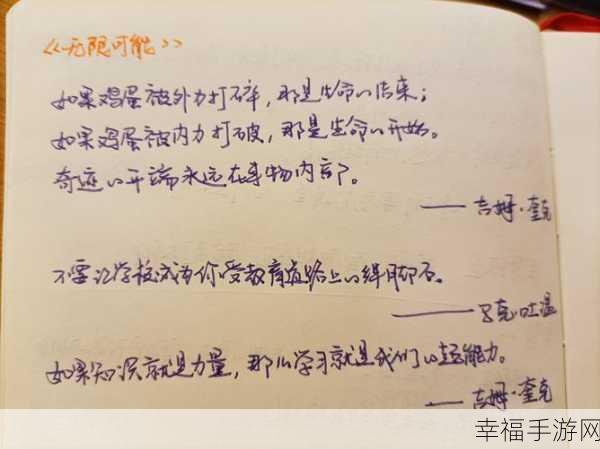 《无限可能》
如果鸡蛋被外力打碎，那是生命的结束；
如果鸡蛋被内力打破，那是生命的开始。
奇迹的开端永远在事物内部。
——吉姆·奎克
不要让学校成为你受教育道路上的绊脚石。
——马克·吐温
如果知识就是力量，那么学习就是我们的超能力。
——吉姆·奎克
幸福手游网